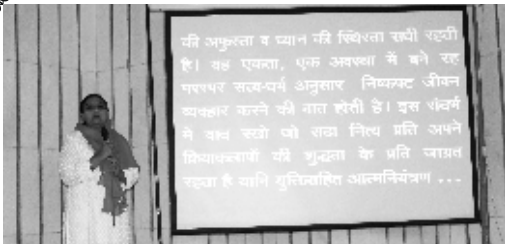 की अफुरता व ध्यान की स्थिरता सधी रहती
है। वह एकता, एक अवस्था में बने रह
परस्पर सत्य-धर्म अनुसार निष्कपट जीवन
व्यवहार करने की बात होती है। इस संदर्भ
में याद रखो जो सदा नित्य प्रति अपने
क्रियाकलापों की शुद्धता के प्रति जाग्रत
रहता है यानि युक्तिसहित आत्मनियंत्रण ...